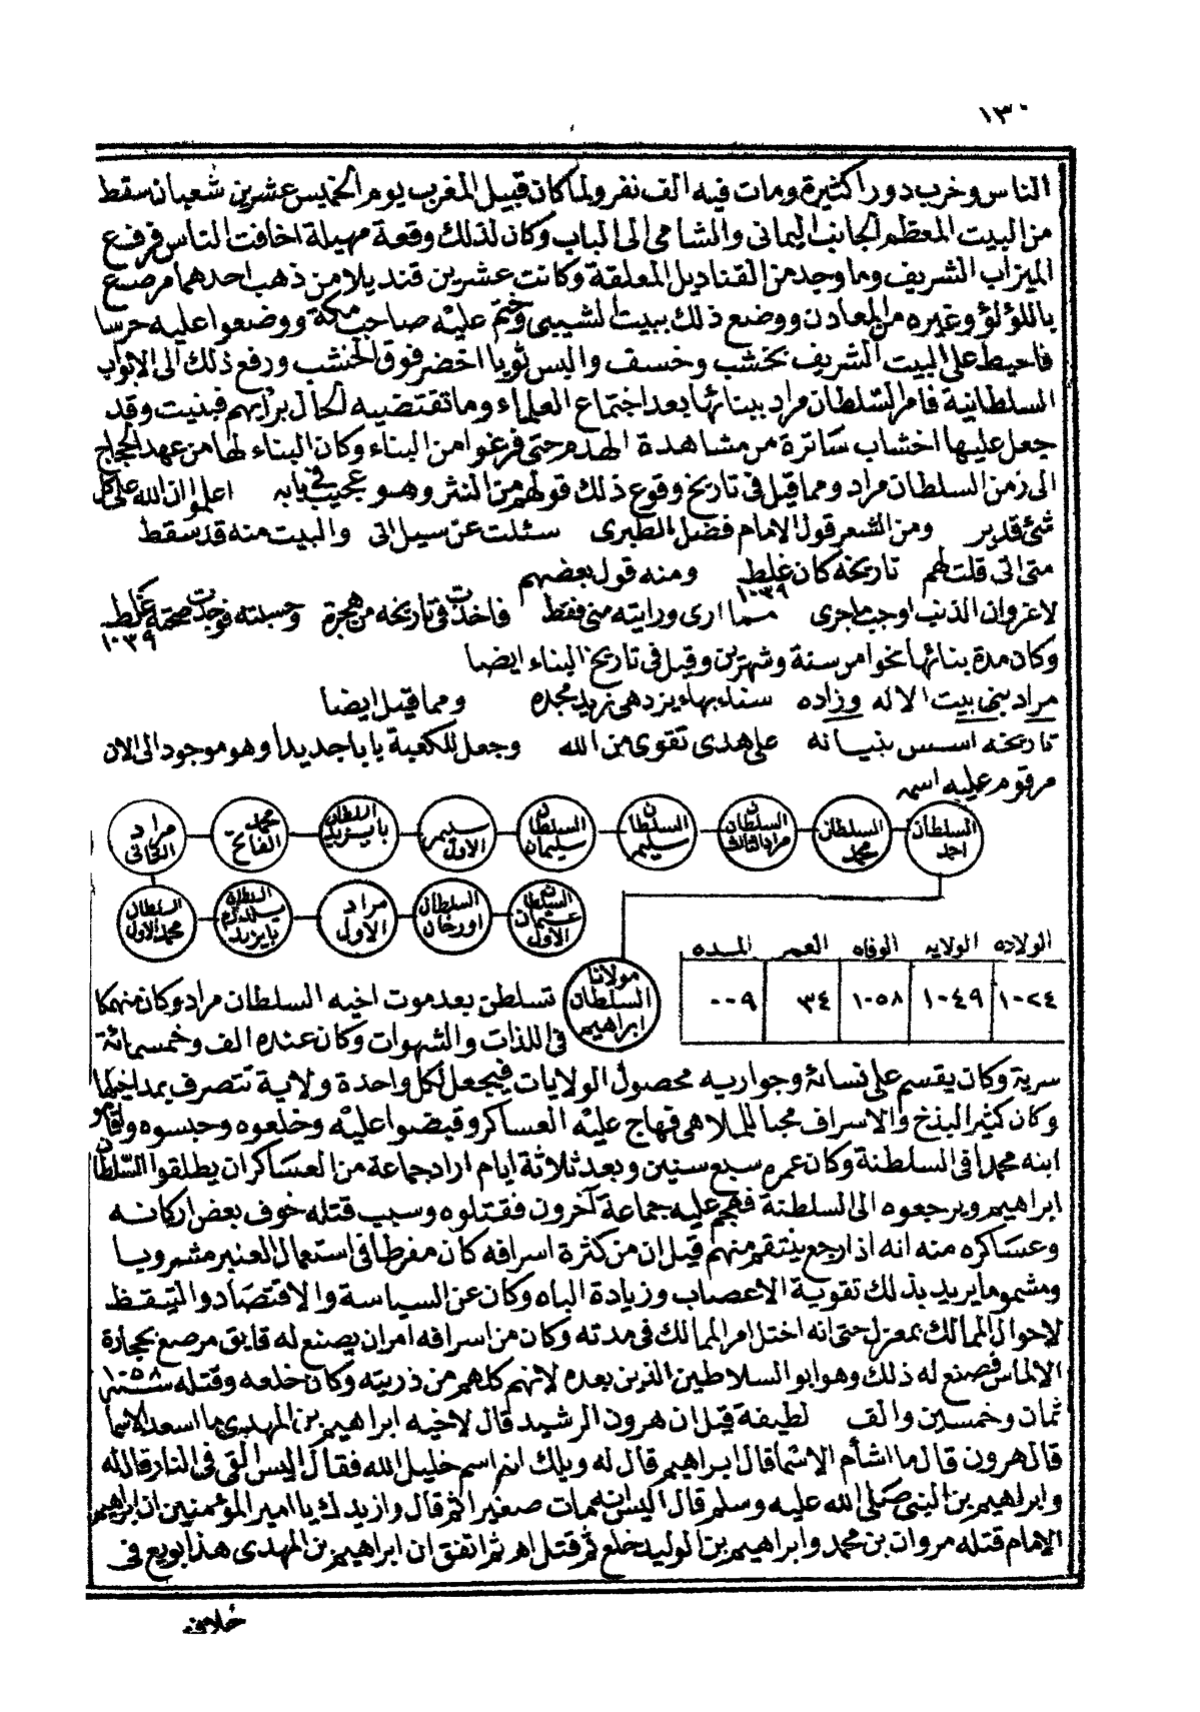 ١٣٠
الناس وخرب دورا كثيرة ومات فيه الف نفر ولما كان قبيل المغرب يوم الخميس عشرين شعبان سقط
من البيت المعظم الجانب اليمانى والشامى الى الباب وكان لذلك وقعة مهيلة اخافت الناس فرفع
الميزاب الشريف وما وجد من القناديل المعلقة وكانت عشرين قنديلا من ذهب احدهما مرصع
باللؤلؤ وغيره من المعادن ووضع ذلك ببيت الشيبى وختم عليه صاحب مكة ووضعوا عليه حرسا
فاحيط على البيت الشريف بخشب وخسف والبس ثوبا اخضر فوق الخشب ورفع ذلك الى الابواب
السلطانية فامر السلطان مراد ببنائها بعد اجتماع العلماء وما تقتضيه الحال برأيهم فبنيت وقد
جعل عليها اخشاب ساترة من مشاهدة الهدم حتى فرغوا من البناء وكان البناء لها من عهد الحجاج
الى زمن السلطان مراد ومما قيل فى تاريخ وقوع ذلك قولهم من النثر وهو عجيب فى بابه اعلموا ان الله على كل
شئ قدير ومن الشعر قول الامام فضل الطبرى سئلت عن سيل اتى والبيت منه قد سقط
متى اتى قلت لهم تاريخه كان غلط ١٠٣٩ ومنه قول بعضهم
لا غرو ان الذنب اوجب ما جرى مما ارى ورايته منى فقط فاخذت فى تاريخه من هجرة وحسبته فوجدت صحته غلط ١٠٣٩
وكان مدة بنائها نحوا من سنة وشهرين وقيل فى تاريخ البناء ايضا
مراد بنى بيت الاله وزاده سناء بهاء يزدهى نزيد مجده ومما قيل ايضا
تاريخه اسس بنيانه على هدى تقوى من الله وجعل للكعبة بابا جديدا وهو موجود الى الان
مرقوم عليه اسمه
السلطان احمد السلطان محمد السلطان مراد الثالث السلطان سليم السلطان سليمان سليم الاول السلطان بايزيد محمد الفاتح مراد الثانى
السلطان عثمان الاول السلطان اورخان مراد الاول السلطان يلدرم بايزيد السلطان محمد الاول
الولاده الولايه الوفاه العمر المده
١٠٢٤ ١٠٤٩ ١٠٥٨ ٣٤ ٠٠٩
مولانا السلطان ابراهيم تسلطن بعد موت اخيه السلطان مراد وكان منهمكا
فى اللذات والشهوات وكان عنده الف وخمسمائة
سرية وكان يقسم على نسائه وجواريه محصول الولايات فيجعل لكل واحدة ولاية تتصرف بمداخيلها
وكان كثير البذخ والاسراف محبا للملاهى فهاج عليه العساكر وقبضوا عليه وخلعوه وحبسوه واقاموا
ابنه محمدا فى السلطنة وكان عمره سبع سنين وبعد ثلاثة ايام اراد جماعة من العساكر ان يطلقوا السلطان
ابراهيم ويرجعوه الى السلطنة فهجم عليه جماعة آخرون فقتلوه وسبب قتله خوف بعض اركانه
وعساكره منه انه اذا رجع ينتقم منهم قيل ان من كثرة اسرافه كان مفرطا فى استعمال العنبر مشروبا
ومشموما يريد بذلك تقوية الاعصاب وزيادة الباه وكان عن السياسة والاقتصاد والتيقظ
لاحوال الممالك بمعزل حتى انه اختل امر الممالك فى مدته وكان من اسرافه امر ان يصنع له قايق مرصع بحجارة
الالماس فصنع له ذلك وهو ابو السلاطين الذين بعده لانهم كلهم من ذريته وكان خلعه وقتله سنة ١٠٥٨
ثمان وخمسين والف لطيفة قيل ان هرون الرشيد قال لاخيه ابراهيم بن المهدى ما اسعد الاسما
قال هرون قال ما اشأم الاسما قال ابراهيم قال له ويلك انه اسم خليل الله فقال اليس القى فى النار قال له
وابراهيم بن النبى صلى الله عليه وسلم قال اليس انه مات صغيرا ثم قال وازيدك يا امير المؤمنين ان ابراهيم
الامام قتله مروان بن محمد وابراهيم بن الوليد خلع ثم قتل اهـ ثم اتفق ان ابراهيم بن المهدى هذا بويع فى
خلافة